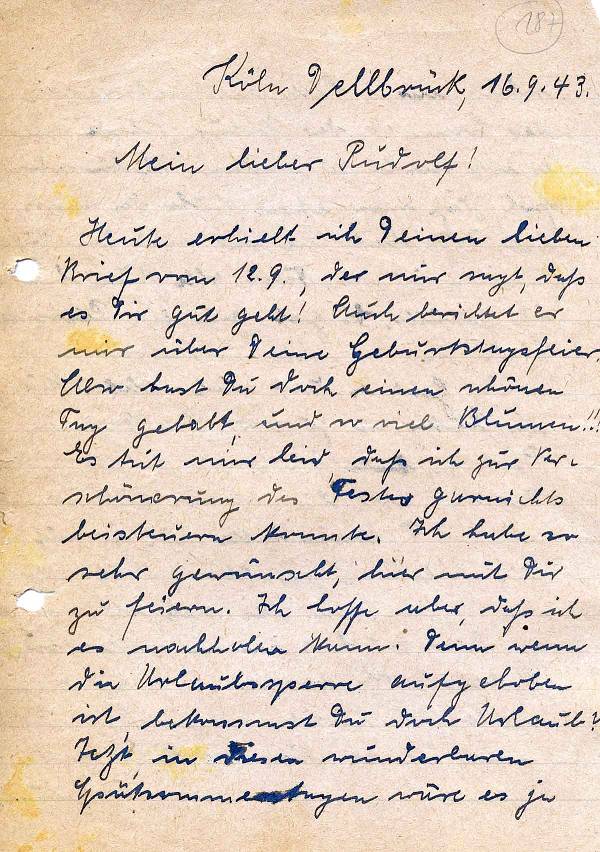 187
Köln Dellbrück, 16.9.43.
Mein lieber Rudolf!
Heute erhielt ich Deinen lieben
Brief vom 12.9., der mir sagt, daß
es Dir gut geht! Auch berichtet er
mir über Deine Geburtstagsfeier.
Also hast Du doch einen schönen
Tag gehabt, und so viel Blumen!!
Es tut mir leid, daß ich zur Ver-
schönerung des Festes garnichts
beisteuern konnte. Ich habe so
sehr gewünscht, hier mit Dir
zu feiern. Ich hoffe aber, daß ich
es nachholen kann. Denn wenn
die Urlaubssperre aufgehoben
ist, bekommst Du doch Urlaub?
Jetzt, in diesen wunderbaren
Spätsommertagen wäre es ja